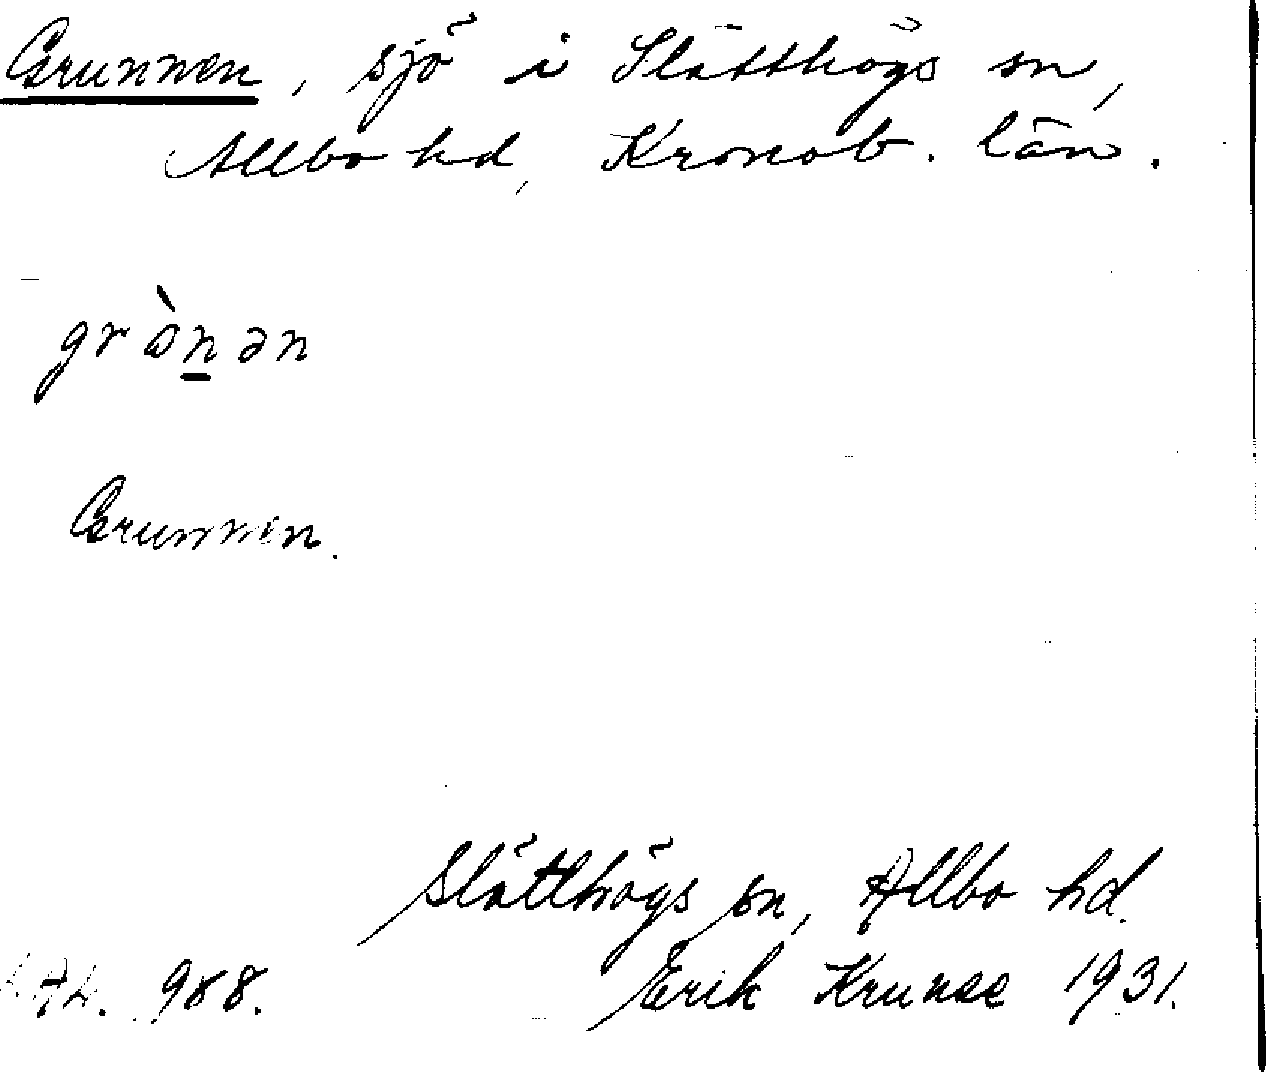 Grunnen, sjö i Slätthögs sn,
Allbo hd, Kronob. län.
grò̱nən
Grunnen.
Slätthögs sn, Allbo hd.
988. Erik Krunse 1931.